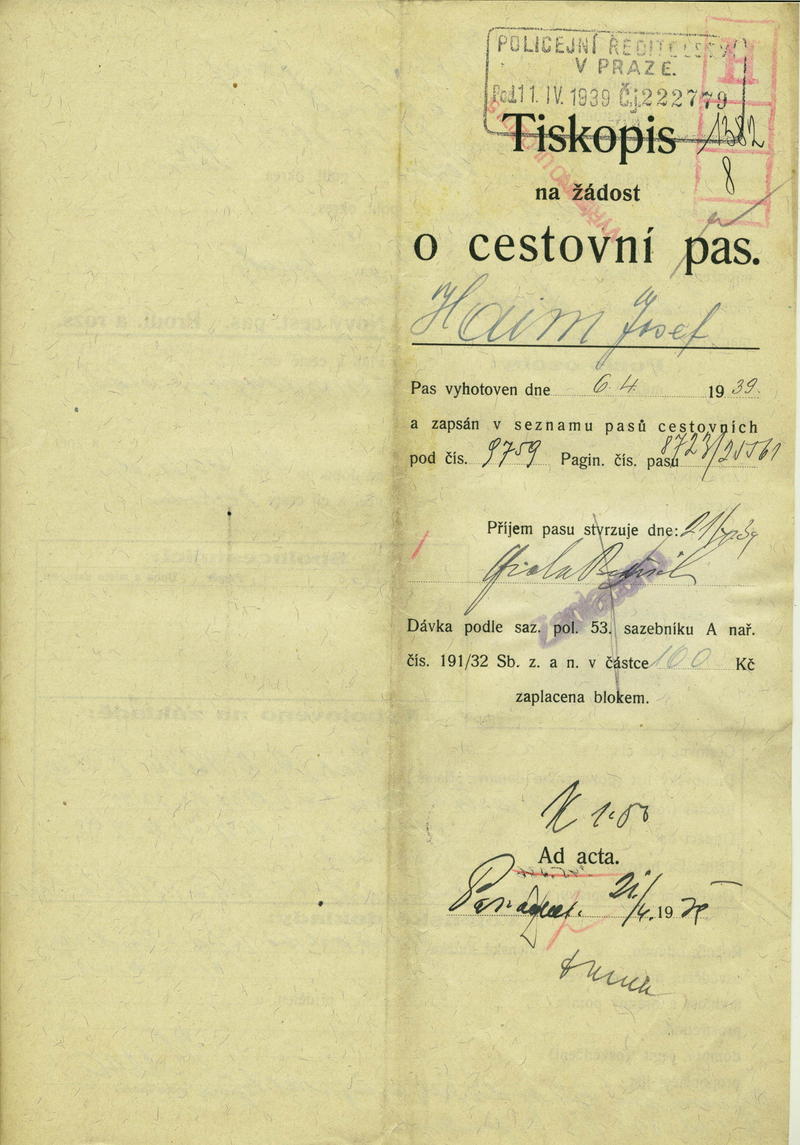 POLICEJNÍ ŘEDITELSTVÍ
V PRAZE.
Doš 11. IV. 1939 Čj. 222779
H
Tiskopis
1382
8
na žádost
o cestovní pas.
Haim Josef
Pas vyhotoven dne 6 4 1939.
a zapsán v seznamu pasů cestovních
pod čís. 9759 Pagin. čís. pasu 8723/25561
Příjem pasu stvrzuje dne: 21/
Dávka podle saz. pol. 53. sazebníku A nař.
čís. 191/32 Sb. z. a n. v částce 100 Kč
zaplacena blokem.
K 1·50
Ad acta.
21/4. 19